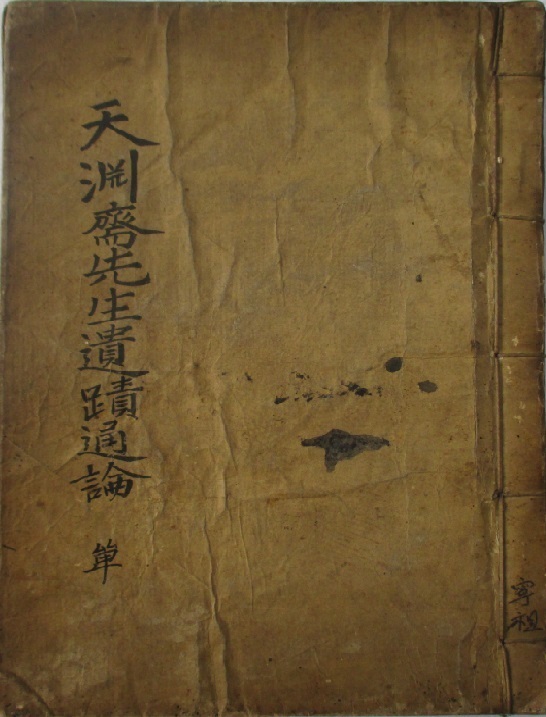 天淵齋先生遺蹟通論 單
祖